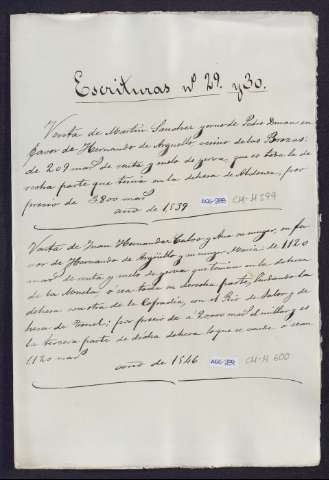 Escrituras nº 29. y 30.
Venta de Martin Sanchez yerno de Pedro Duran en
favor de Hernando de Arguello vecino de las Brozas:
de 209 mars. de renta y suelo de yerva, que es toda la de
recha parte que tenia en la dehesa de por
precio de 3800 mars.
año de 1539 AGG-288 CM-H 599
Venta de Juan Hernandez Calvo y Ana su muger, en fa
vor de Hernando de Argüello y su muger, Maria de 1120
mars. de renta y suelo de yerva que tenian en la dehesa
de la o sea toda su derecha parte, lindando la
dehesa con otra de la Cofradia, con el Rio de Salor y de
hesa de por precio de a 20000 mars. el millar, y es
la tercera parte de dicha dehesa lo que se vende o sean
1120 mars.
año de 1546 AGG-289 CM-H 600